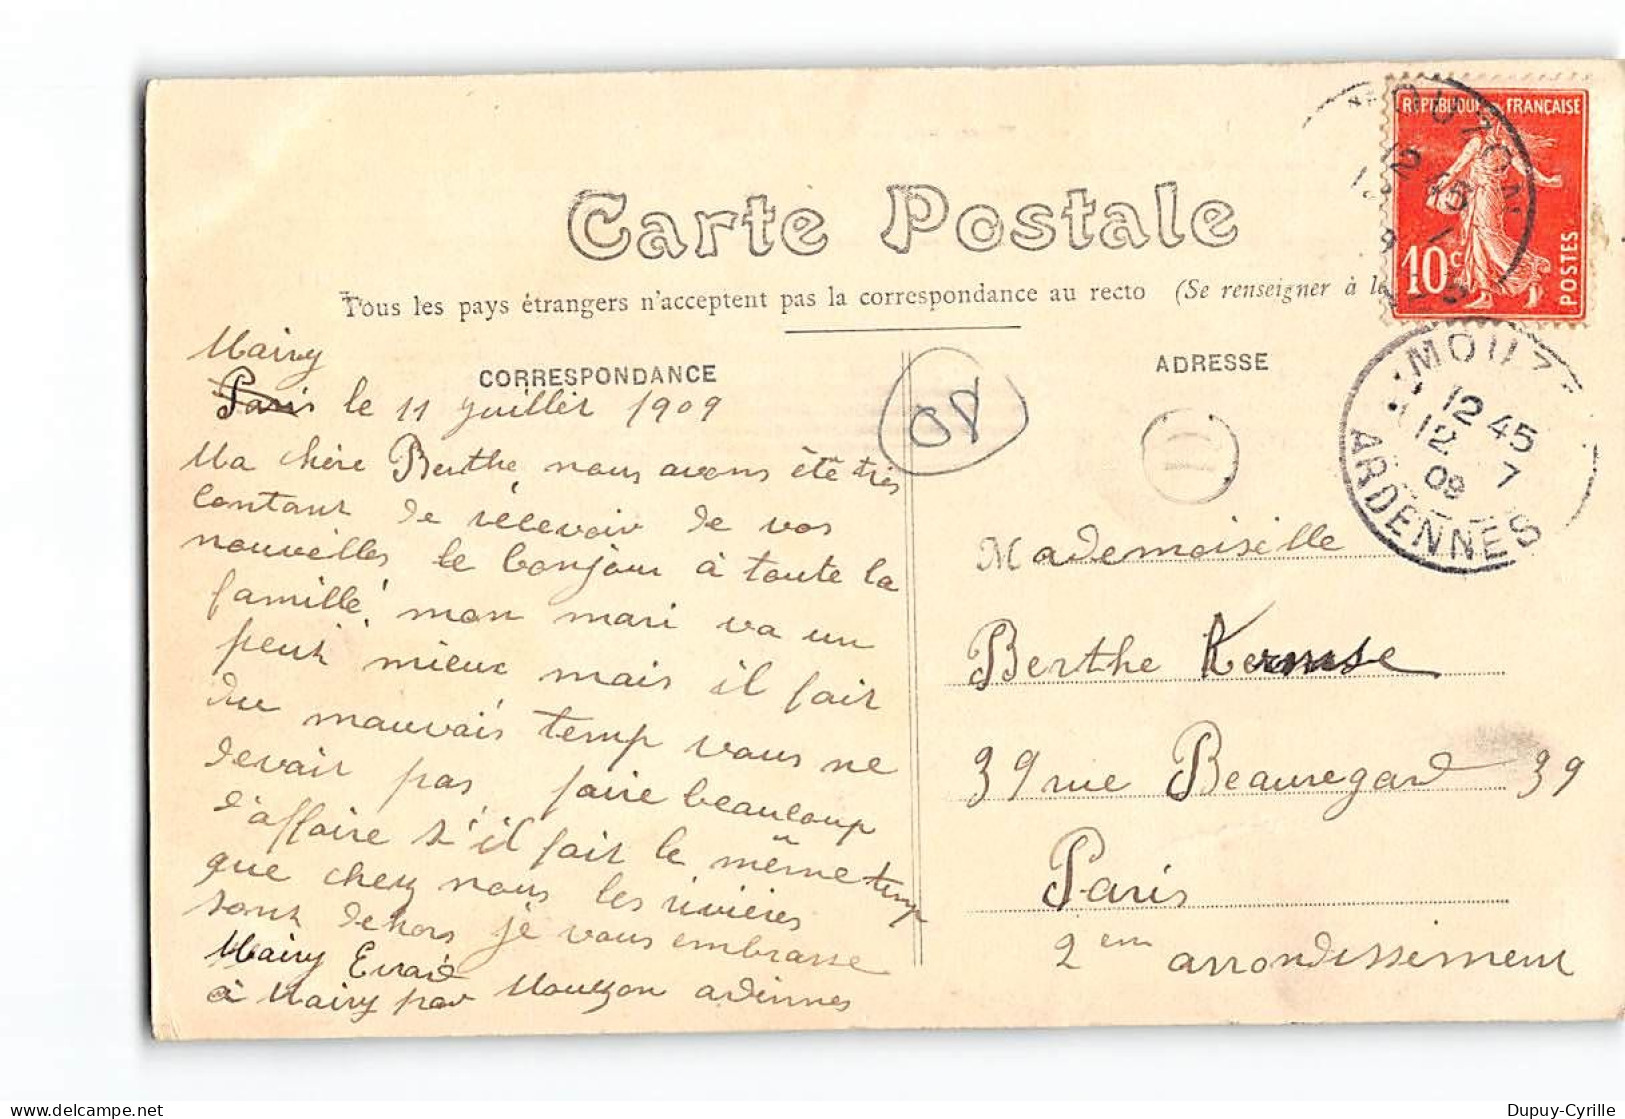 Carte Postale
Tous les pays étrangers n'acceptent pas la correspondance au recto (Se renseigner à la
CORRESPONDANCE
Mairy
Paris le 11 juillet 1909
Ma chère Berthe, nous avons été très
contant de récevoir de vos
nouvelles le bonjour à toute la
famille, mon mari va un
peut mieux mais il fait
du mauvais temp vous ne
devait pas faire beaucoup
d'affaire s'il fait le même temp
que chez nous les rivières
sont dehors je vous embrasse
Mairy Errard
à Mairy par Mouzon ardennes
OP
ADRESSE
Mademoiselle
Berthe
39 rue Beauregard 39
Paris
2em arrondissement
REPUBLIQUE FRANÇAISE
10c
POSTES
MOUZON
12 45
MOUZ
12 45
12 7
09
ARDENNES
Dupuy-Cyrille